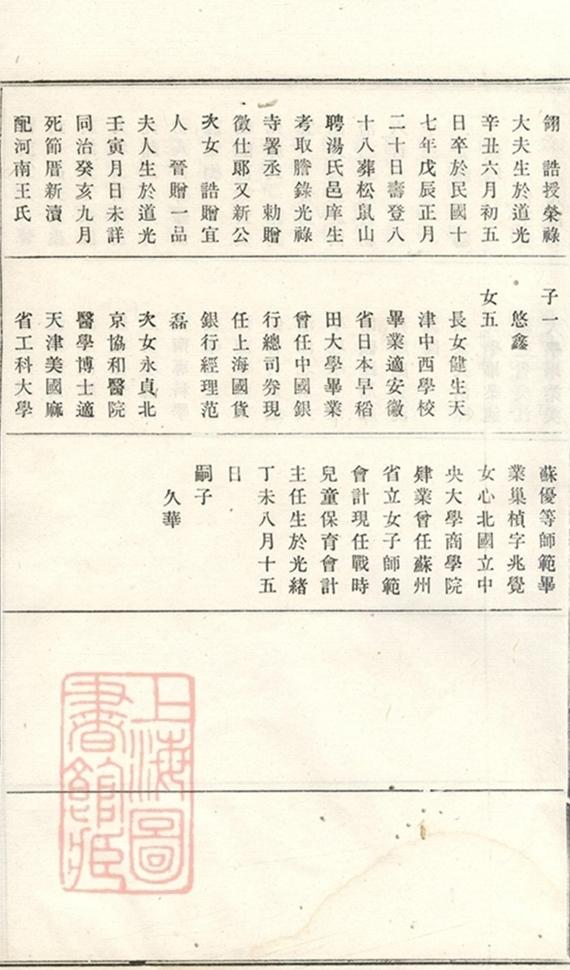 翎　誥授榮祿
大夫生於道光
辛丑六月初五
日卒於民國十
七年戊辰正月
二十日壽登八
十八葬松鼠山
聘湯氏邑庠生
考取謄錄光祿
寺署丞　勅贈
徵仕郎又新公
次女　誥贈宜
人　晉贈一品
夫人生於道光
壬寅月日未詳
同治癸亥九月
死節厝新瀆
配河南王氏
子一
悠鑫
女五
長女健生天
津中西學校
畢業適安徽
省日本早稻
田大學畢業
曾任中國銀
行總司券現
任上海國貨
銀行經理范
磊
次女永貞北
京協和醫院
醫學博士適
天津美國麻
省工科大學
蘇優等師範畢
業巢楨字兆覺
女心北國立中
央大學商學院
肄業曾任蘇州
省立女子師範
會計現任戰時
兒童保育會計
主任生於光緒
丁未八月十五
日
嗣子
久華
上海圖
書館藏